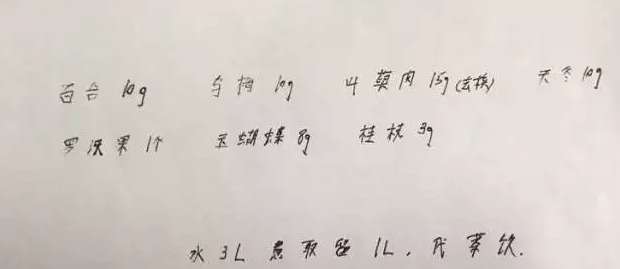 百合 10g 乌梅 10g 山萸肉 15g(去核) 天冬 10g
罗汉果 1个 玉蝴蝶 8g 桂枝 3g
水 3L 煮取 1L,代茶饮.